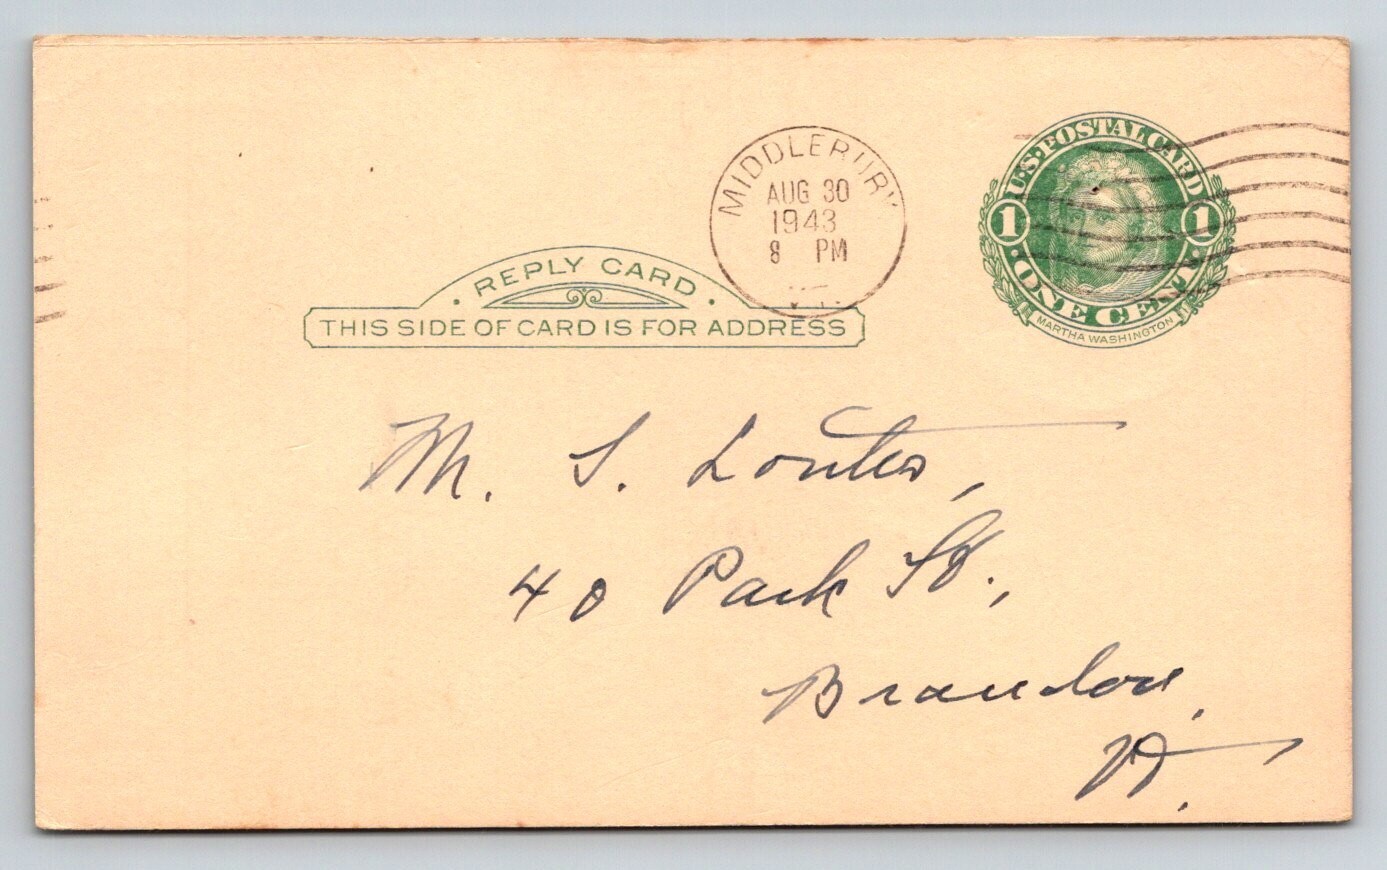 MIDDLEBURY
AUG 30
1943
8 PM
VT.
U.S. POSTAL CARD
1 1
ONE CENT
MARTHA WASHINGTON
REPLY CARD
THIS SIDE OF CARD IS FOR ADDRESS
M. S.
40 Park St.,
Brandon,
Vt.